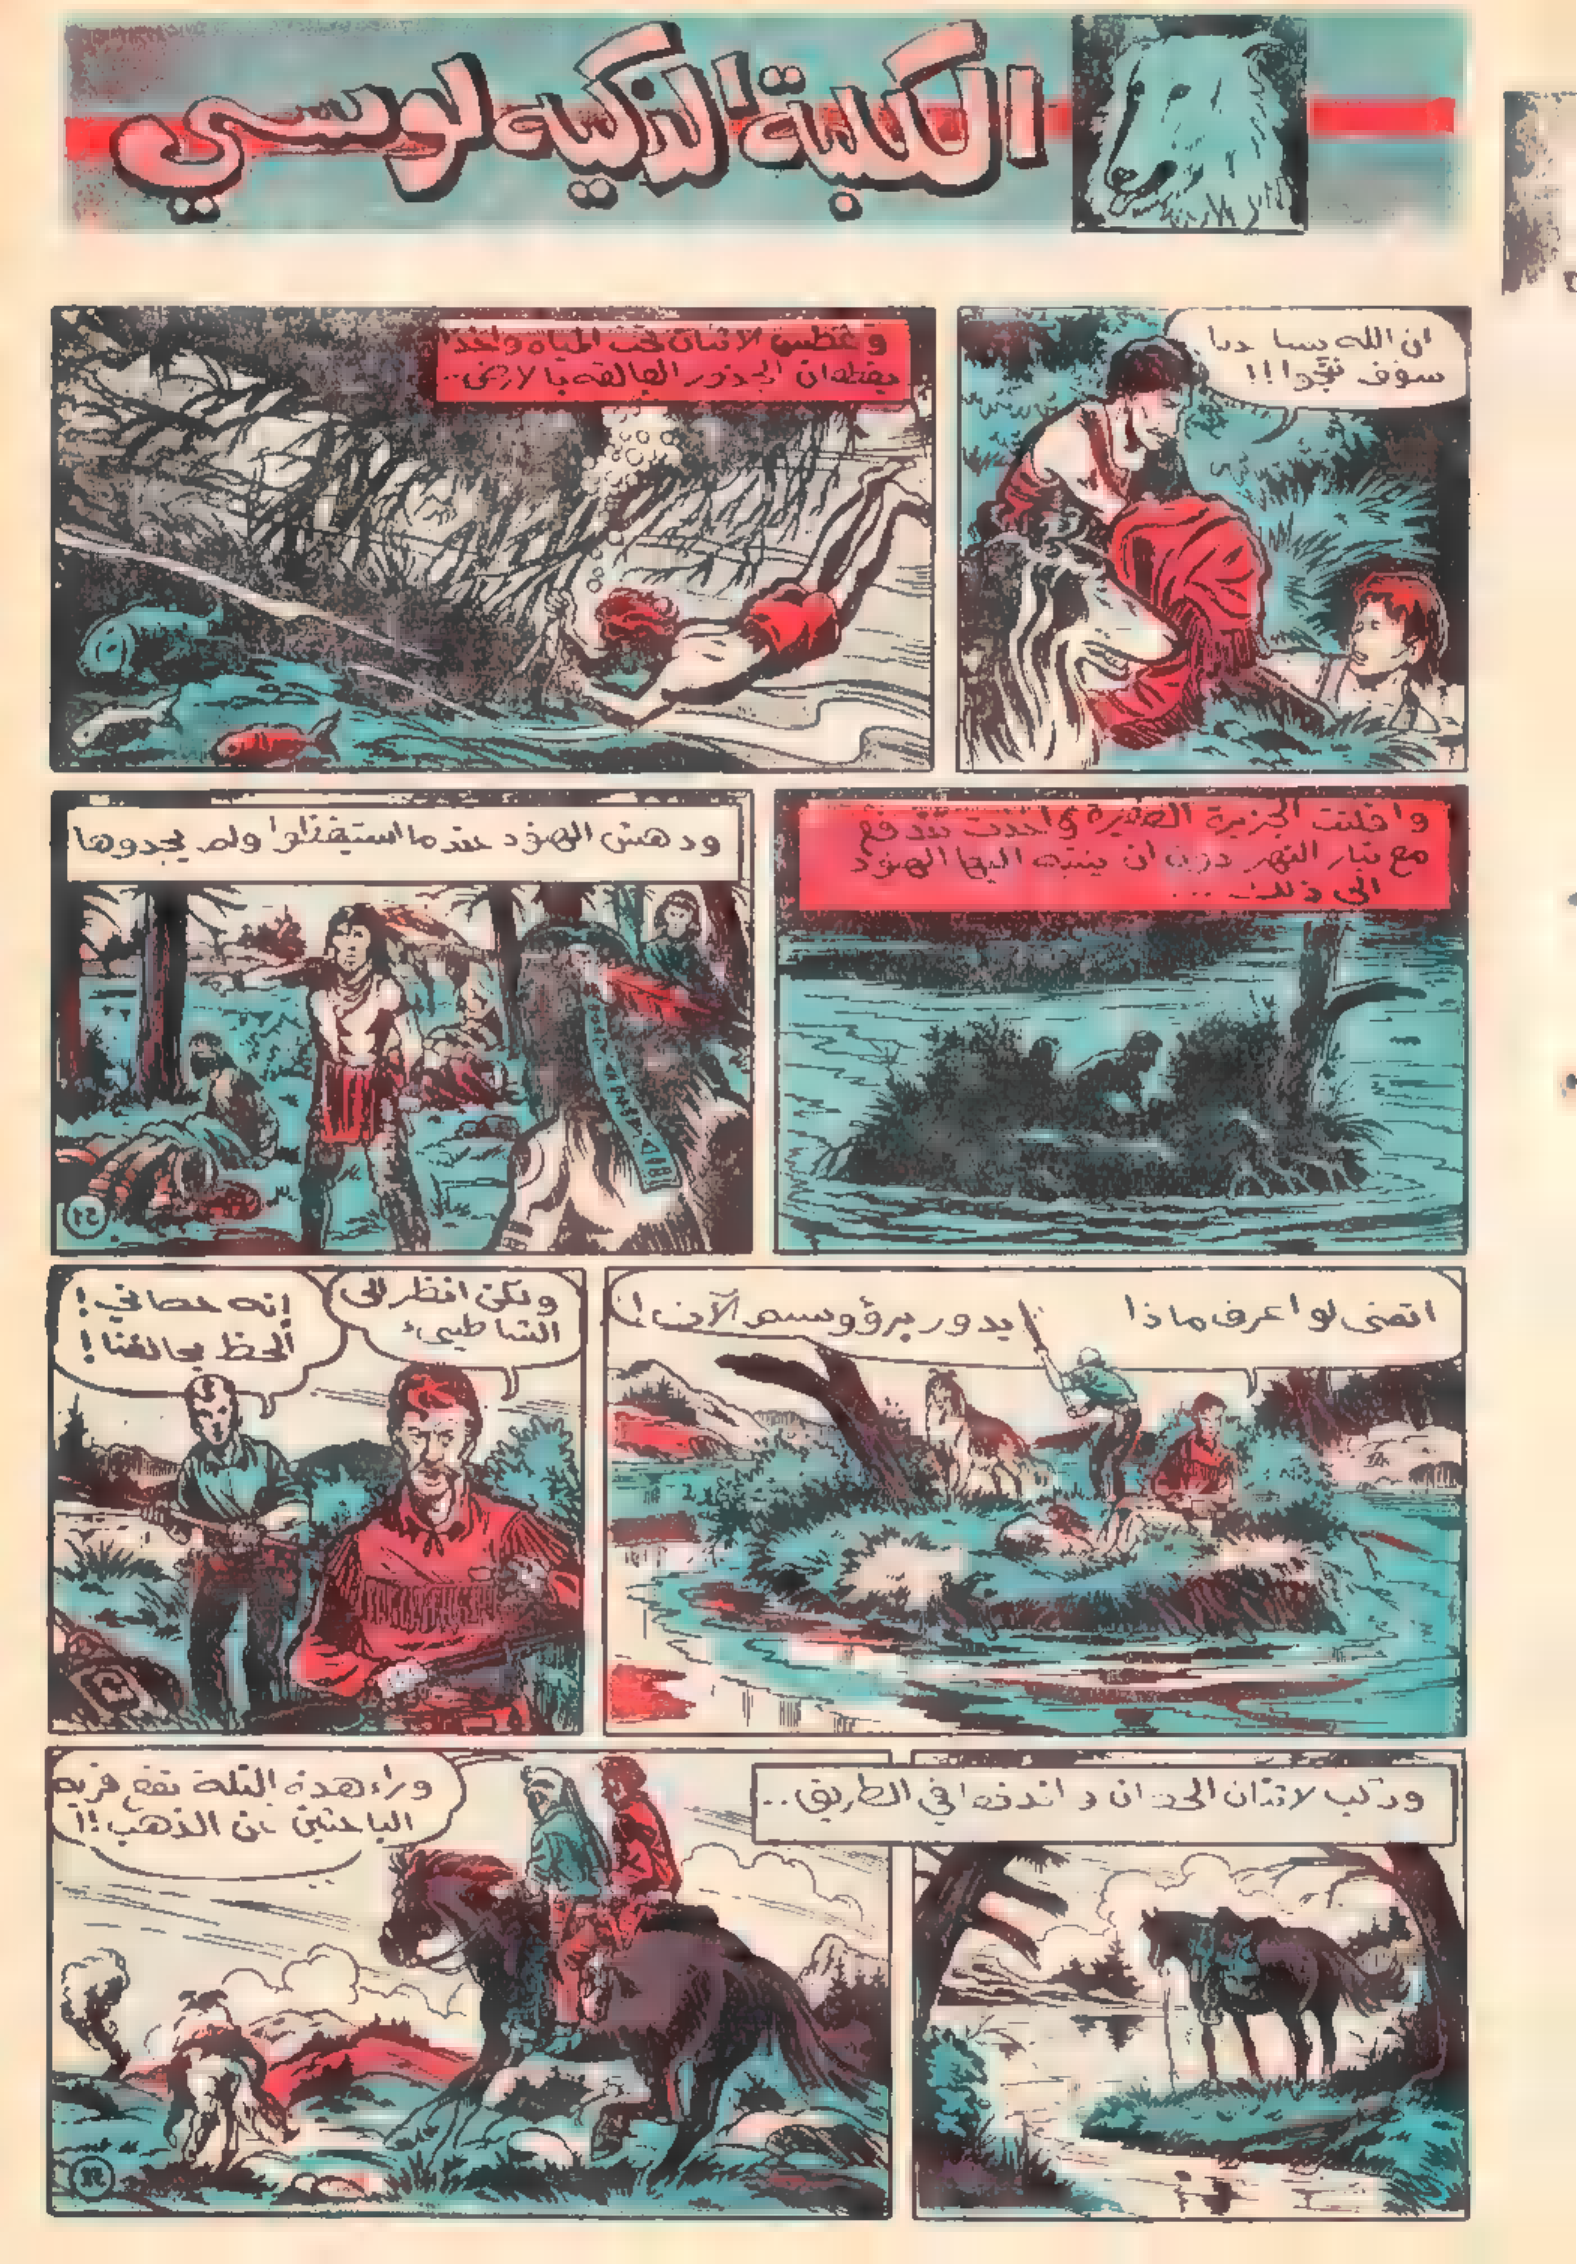 الكلبة الذكية لوسي
ان الله يساعدنا
سوف ننجوا!!
وغطس الاثنان تحت المياه واخذا
يقطعان الجذور العالقه بالارض..
وافلتت الجزيرة الصغيرة واخذت تندفع
مع تيار النهر دون ان ينتبه اليها الهنود
الى ذلك...
ودهش الهنود عندما استيقظوا ولم يجدوها
51
اتمنى لو اعرف ماذا يدور برؤوسهم الآن!
ولكن انظر الى
الشاطىء
إنه حصاني!
الحظ يحالفنا!
وركب الاثنان الحصان واندفعا في الطريق..
وراء هذه التلة تقع قرية
الباحثين عن الذهب!!
52